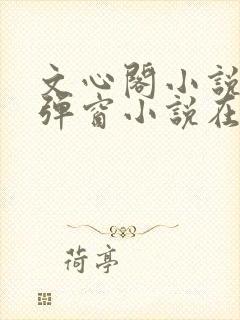 文心閣小說
彈窗小說在
荷亭